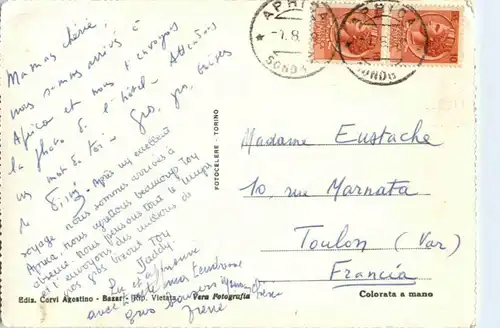 APRICA
-1.8
SONDRIO
APRICA
SONDRIO
Maman chérie,
nous sommes arrivés à
Aprica et nous t'envoyons
la photo de l'hôtel - Attendons
un mot de toi - Gros, gros baisers
de Zizi - Après un excellent
voyage nous sommes arrivés à
Aprica, nous regrettons beaucoup Ton
absence, nous pensons tout le temps
et t'envoyons des millions de
gros bisous Ton
Daddy
avec toute ma tendresse
gros baisers
Irène
FOTOCELERE - TORINO
Madame Eustache
10, rue Marnata
Toulon (Var)
Francia
Ediz. Corvi Agostino - Bazar - Rip. Vietata - Vera Fotografia
Colorata a mano